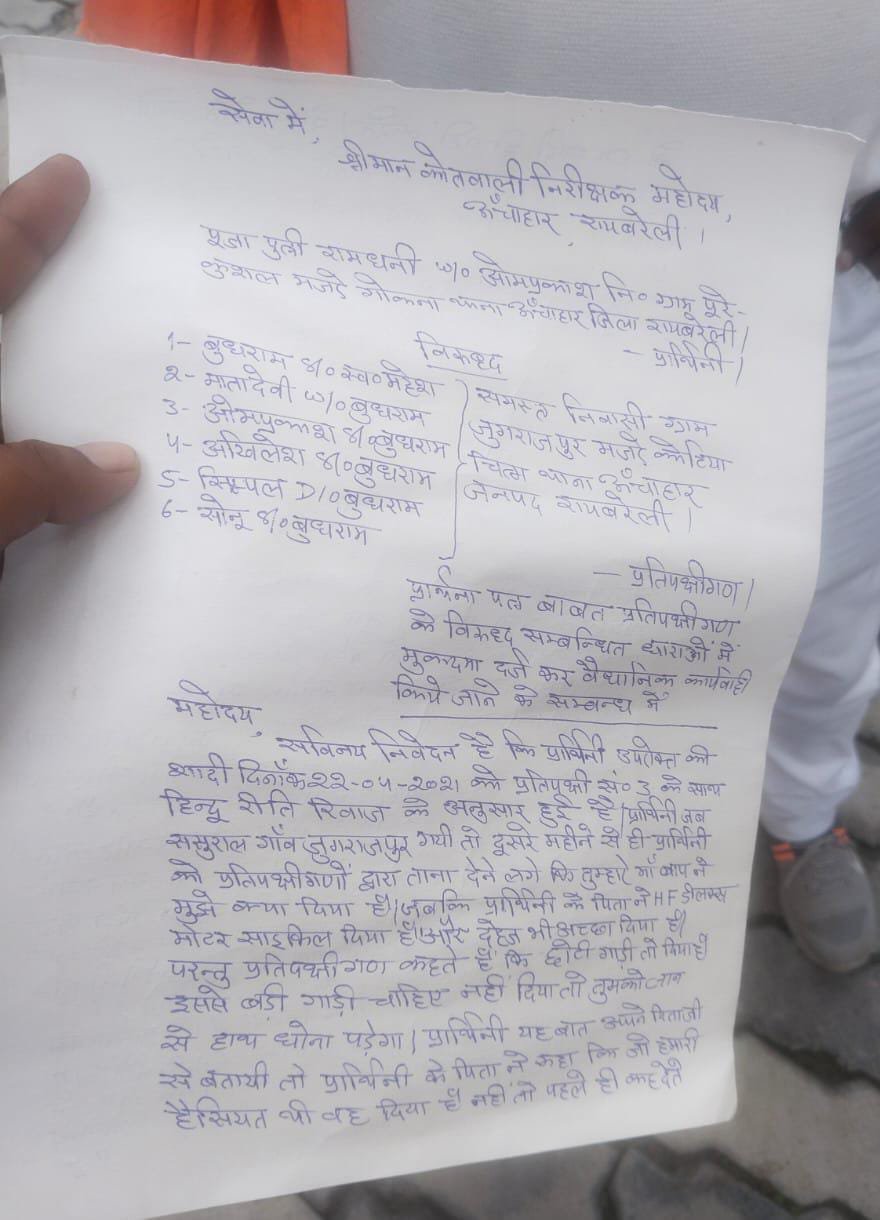 सेवा में,
श्रीमान कोतवाली निरीक्षक महोदय,
ऊँचाहार, रायबरेली।
पूजा पुत्री रामधनी w/o ओमप्रकाश नि० ग्राम पूरे-
कुशल मजरे गोकना थाना ऊँचाहार जिला रायबरेली।
- प्रार्थिनी।
विरूद्ध
1- बुधराम s/o स्व० महेश
2- मातादेवी w/o बुधराम
3- ओमप्रकाश s/o बुधराम
4- अखिलेश s/o बुधराम
5- सिम्पल D/o बुधराम
6- सोनू s/o बुधराम
समस्त निवासी ग्राम
जुगराजपुर मजरे कोटिया
चित्रा थाना ऊँचाहार
जनपद रायबरेली।
- प्रतिपक्षीगण।
प्रार्थना पत्र बाबत प्रतिपक्षीगण
के विरूद्ध सम्बन्धित धाराओं में
मुकदमा दर्ज कर वैधानिक कार्यवाही
किये जाने के सम्बन्ध में
महोदय,
सविनय निवेदन है कि प्रार्थिनी उपरोक्त की
शादी दिनाँक 22-04-2021 को प्रतिपक्षी सं० 3 के साथ
हिन्दू रीति रिवाज के अनुसार हुई है। प्रार्थिनी जब
ससुराल गाँव जुगराजपुर गयी तो दूसरे महीने से ही प्रार्थिनी
को प्रतिपक्षीगणों द्वारा ताना देने लगे कि तुम्हारे माँ बाप ने
मुझे क्या दिया है। जबकि प्रार्थिनी के पिता ने HF डीलक्स
मोटर साइकिल दिया है। और दहेज भी अच्छा दिया है।
परन्तु प्रतिपक्षीगण कहते हैं कि छोटी गाड़ी तो दिया है
इससे बड़ी गाड़ी चाहिए नहीं दिया तो तुमको जान
से हाथ धोना पड़ेगा। प्रार्थिनी यह बात अपने पिताजी
से बतायी तो प्रार्थिनी के पिता ने कहा कि जो हमारी
हैसियत थी वह दिया है नहीं तो पहले ही कह देते